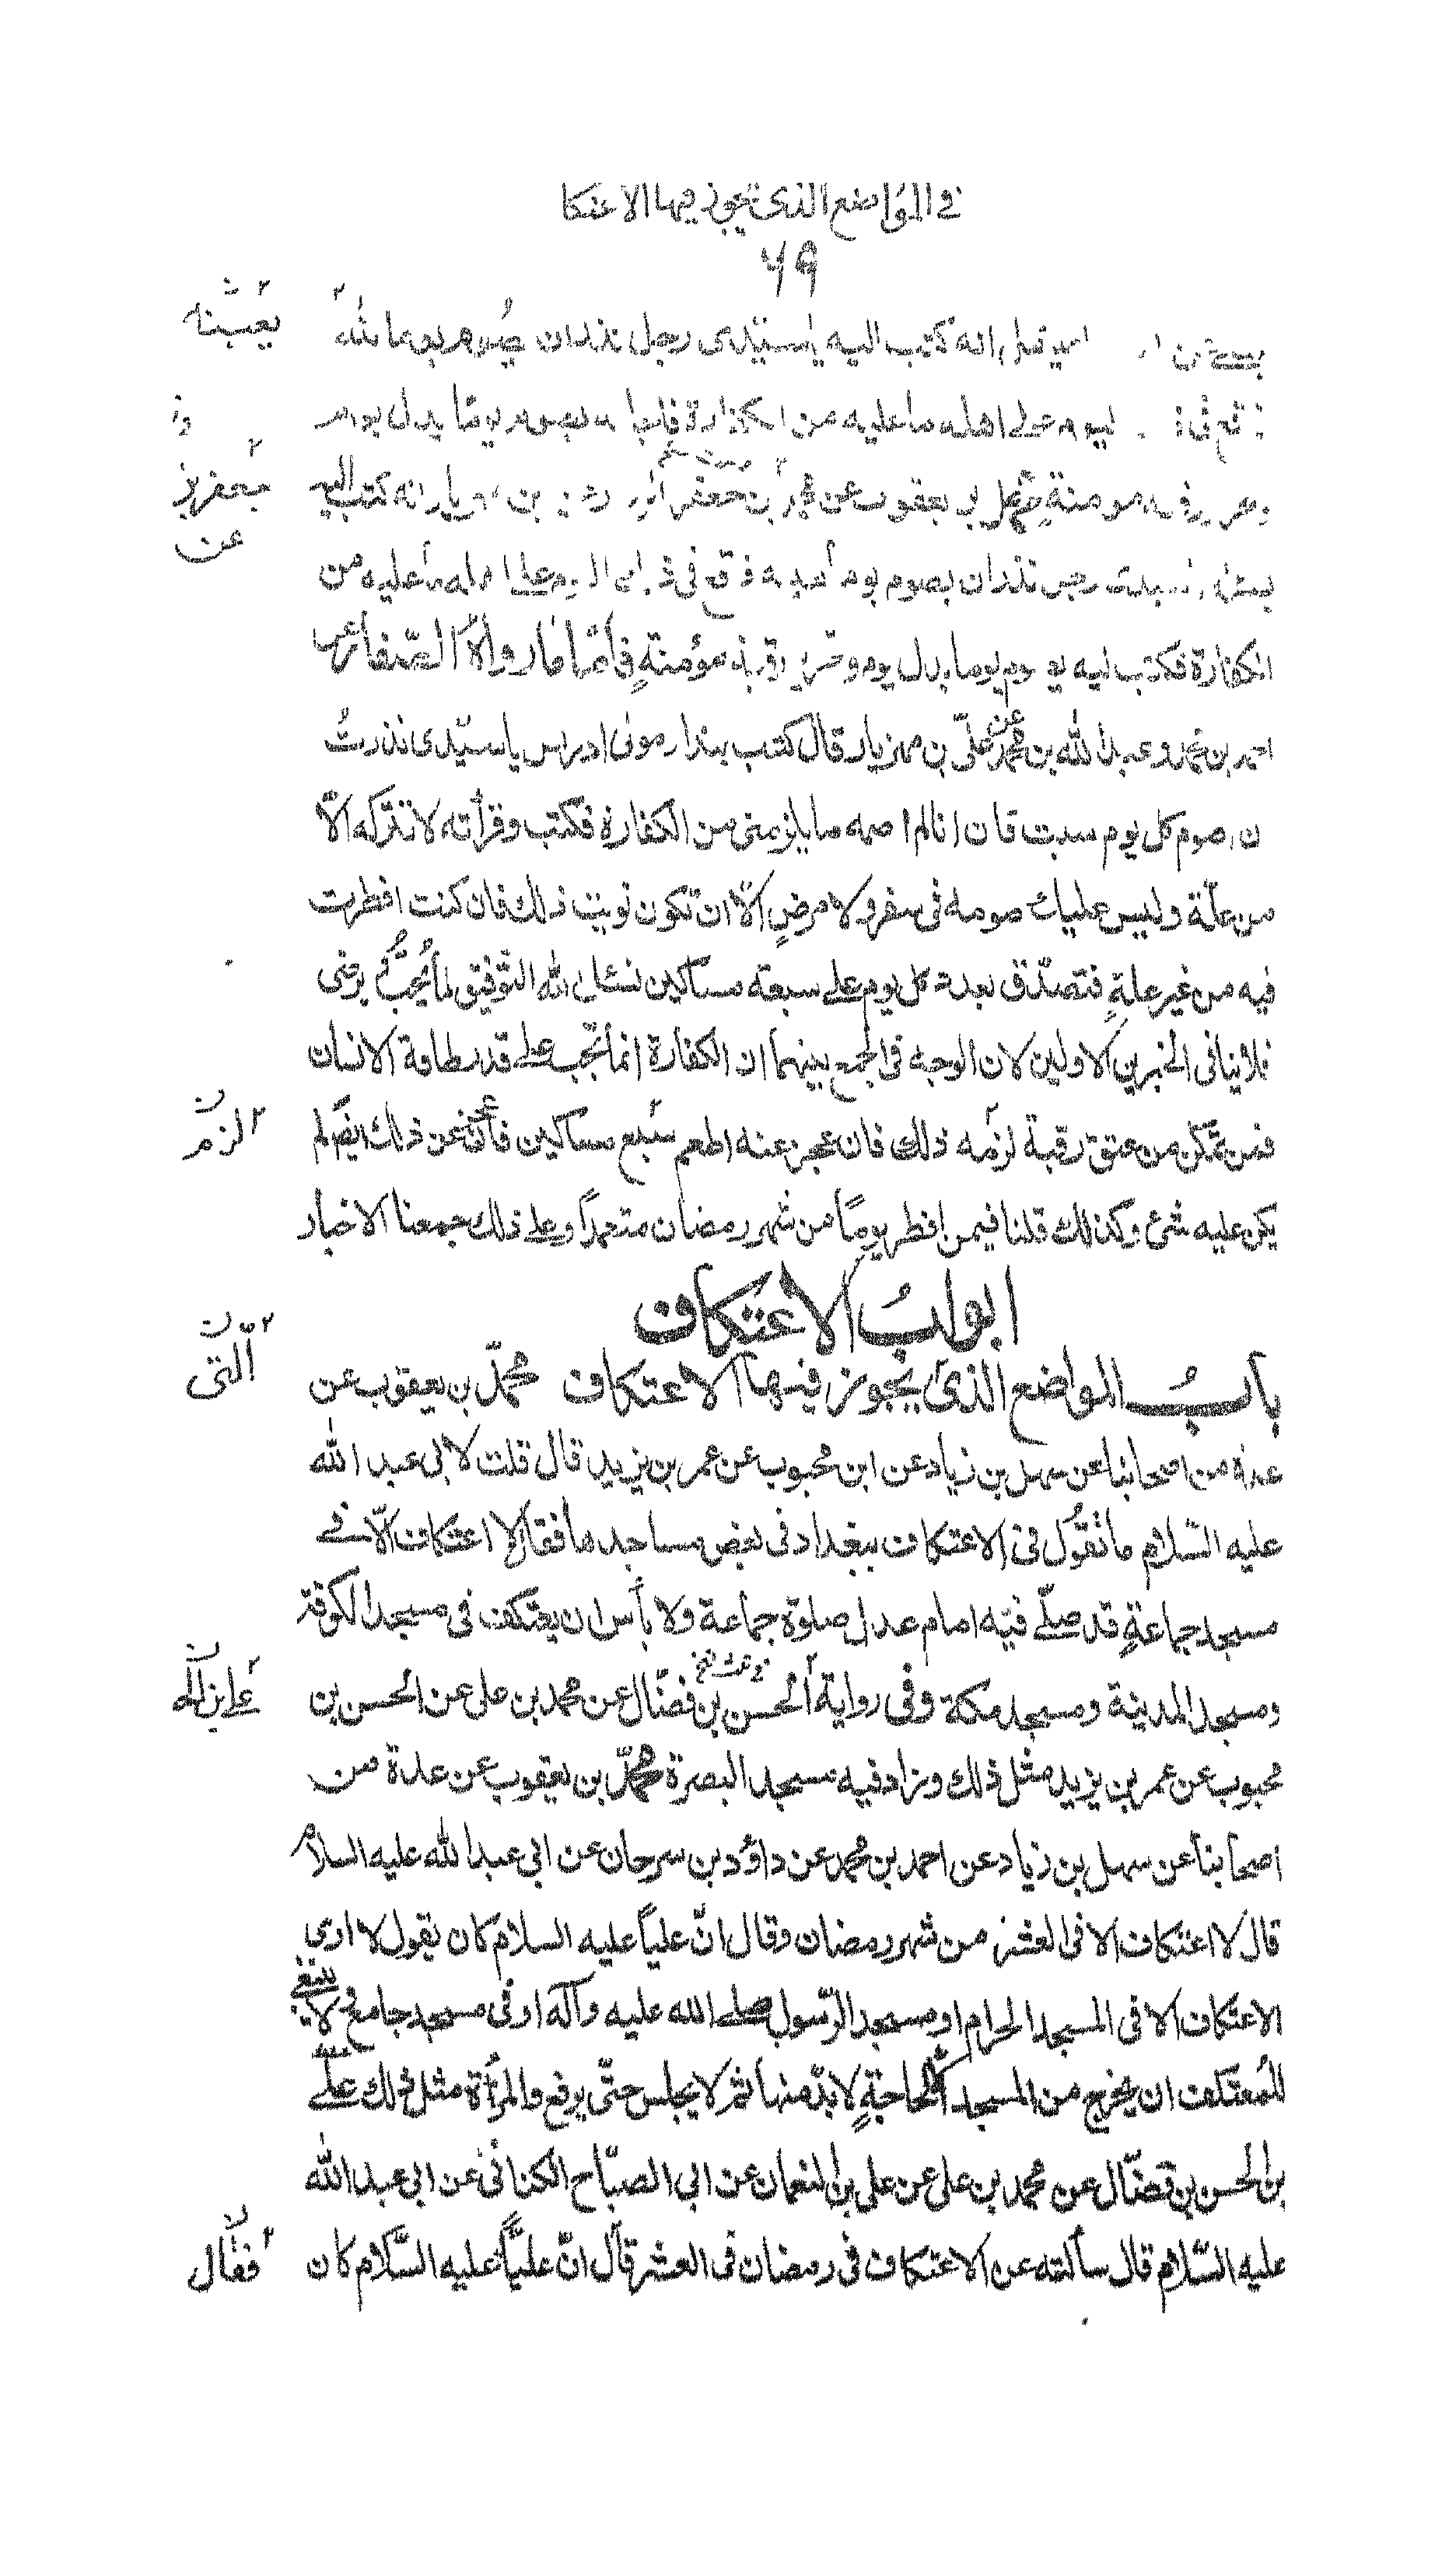 في المواضع الذى يجوز فيها الاعتكا
٦٩
انه كتب اليه يا سيدى رجل نذر ان يصوم يوما لله
يعينه
ليوم على اهله ما عليه من الكفارة فاجابه يصوم يوما بدل يوم
وتحرير رقبة مومنة محمد بن يعقوب عن محمد بن جعفر بن مهزيار انه كتب اليه
جعفر بن
عن
رجل نذر ان يصوم يوم فوقع فى ذلك اليوم على اهله ما عليه من
الكفارة فكتب اليه يصوم يوما بدل يوم وتحرير رقبة مؤمنةٍ فأمّا ما رواه الصّفار عن
احمد بن محمد وعبد الله بن محمد عن علىّ بن مهزيار قال كتب بندار مولى ادريس يا سيّدى نذرتُ
ان اصوم كل يوم سبت فان انا لم اصمه ما يلزمنى من الكفارة فكتب وقرأته لا تتركه الّا
من علّة وليس عليك صومه فى سفر ولا مرضٍ الّا ان تكون نويت ذلك فان كنت افطرت
فيه من غير علةٍ فتصدّق بعدد كل يوم على سبعة مساكين نسئل الله التّوفيق لما يُحبُّ ويرضى
فلا ينافى الخبرين الاولين لان الوجه فى الجمع بينهما ان الكفارة انما تجب على قدر طاقة الانسان
فمن تمكّن من عتق رقبة لزمه ذلك فان عجز عنه اطعم سبع مساكين فأن عجز عن ذلك ايضا لم
الزم
يكن عليه شئ وكذلك قلنا فيمن افطر يومًا من شهر رمضان متعمدًا وعلى ذلك جمعنا الاخبار
ابوابُ الاعتكاف
بابُ المواضع الذى يجوز فيها الاعتكاف محمّد بن يعقوب عن
الّتى
عدة من اصحابنا عن سهل بن زياد عن ابن محبوب عن عمر بن يزيد قال قلت لابى عبد الله
عليه السّلام ما تقول فى الاعتكاف ببغداد فى بعض مساجدها فقال لا اعتكاف الّا فے
مسجد جماعةٍ قد صلّى فيه امام عدل صلوة جماعة ولا بأس ان يعتكف فى مسجد الكوفة
ومسجد المدينة ومسجد مكة وفى رواية الحسن بن فضّال عن محمد بن على عن الحسن بن
على بن
محبوب عن عمر بن يزيد مثل ذلك وزاد فيه مسجد البصرة محمّد بن يعقوب عن عدة من
اصحابنا عن سهل بن زياد عن احمد بن محمد عن داؤد بن سرحان عن ابى عبد الله عليه السلام
قال لا اعتكاف الا فى العشر من شهر رمضان وقال انّ علياً عليه السلام كان يقول لا ارى
الاعتكاف الا فى المسجد الحرام او مسجد الرّسول صلى الله عليه وآله او فى مسجد جامع ولا ينبغى
للمُعتكف ان يخرج من المسجد الا لحاجةٍ لا بدّ منها ثم لا يجلس حتّى يرجع والمرأة مثل ذلك علّى
بن الحسن بن فضّال عن محمد بن على عن على بن النعمان عن ابى الصبّاح الكنانى عن ابى عبد الله
عليه السّلام قال سألته عن الاعتكاف فى رمضان فى العشر قال انّ عليّاً عليه السّلام كان
فقال